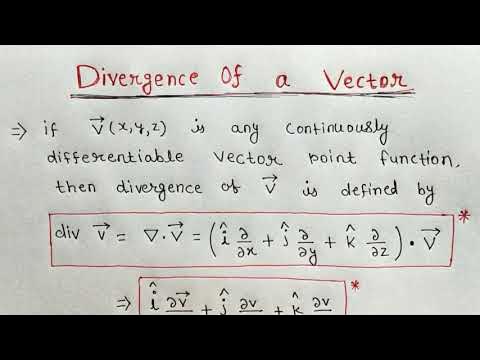 Divergence Of a Vector
⇒ if V⃗(x,y,z) is any continuously
differentiable vector point function,
then divergence of V⃗ is defined by
div V⃗ = ∇·V⃗ = (î ∂/∂x + ĵ ∂/∂y + k̂ ∂/∂z)·V⃗ *
⇒ î ∂V⃗ + ĵ ∂V + k̂ ∂V *